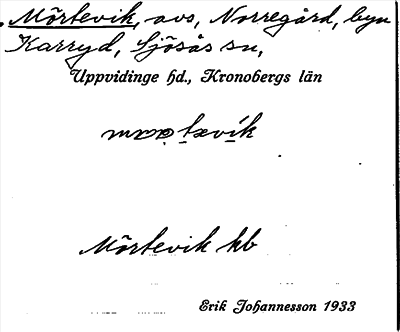 Mörtevik, avs, Norregård, byn
Karryd, Sjösås sn,
Uppvidinge hd., Kronobergs län
Mörtevik kb
Erik Johannesson 1933